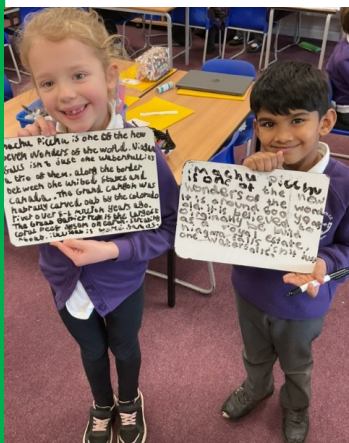 Machu Picchu is one of the new
seven wonders of the world. Niagra
Falls isn't just one waterfall its
a trio of them, along the border
between one united states and
Canada. The Grand canyon was
natrully carved out by the colorado
River over 5-6 million years ago.
The Great barrier reef is the largest
coral reef
Machu Picchu
is one of the new
wonders of the world
it is around 600 years
old. it is believed to
originally be build
as a royal estate.
niagra falls isn't just
one waterfall